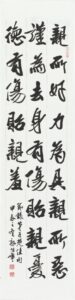 親所好力為具親所惡
謹為去身有傷貽親憂
德有傷貽親羞